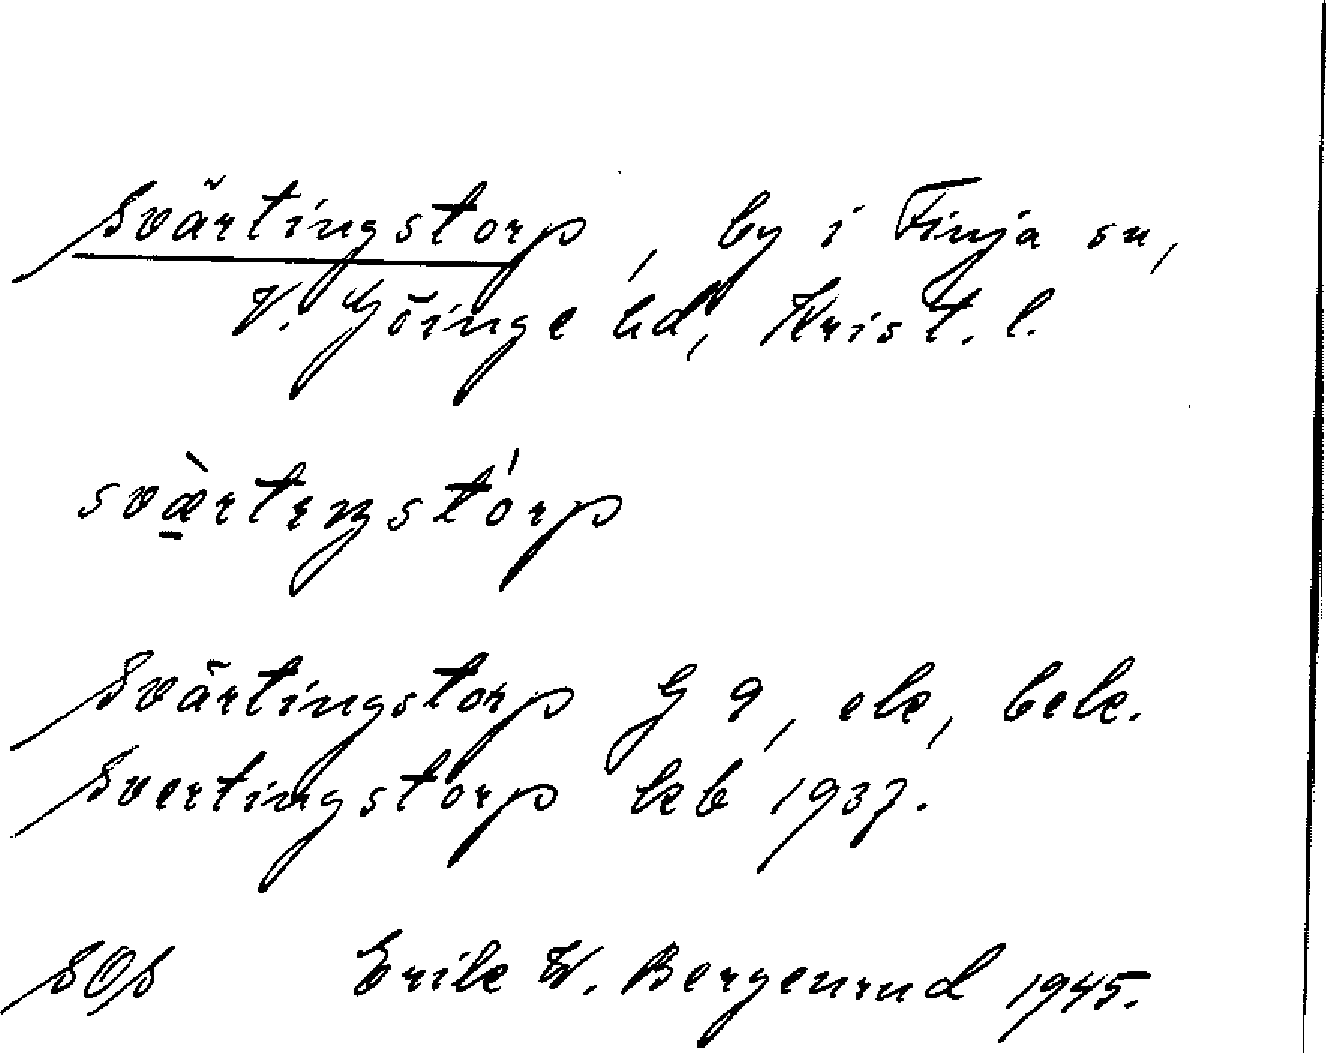 Svärtingstorp, by i Finja sn,
V. Göinge hd, Krist. l.
svæ̀rtıŋstórp
Svärtingstorp G 9, ek, bek.
Svertingstorp kb 1937.
SOS Erik W. Bergenrud 1945.